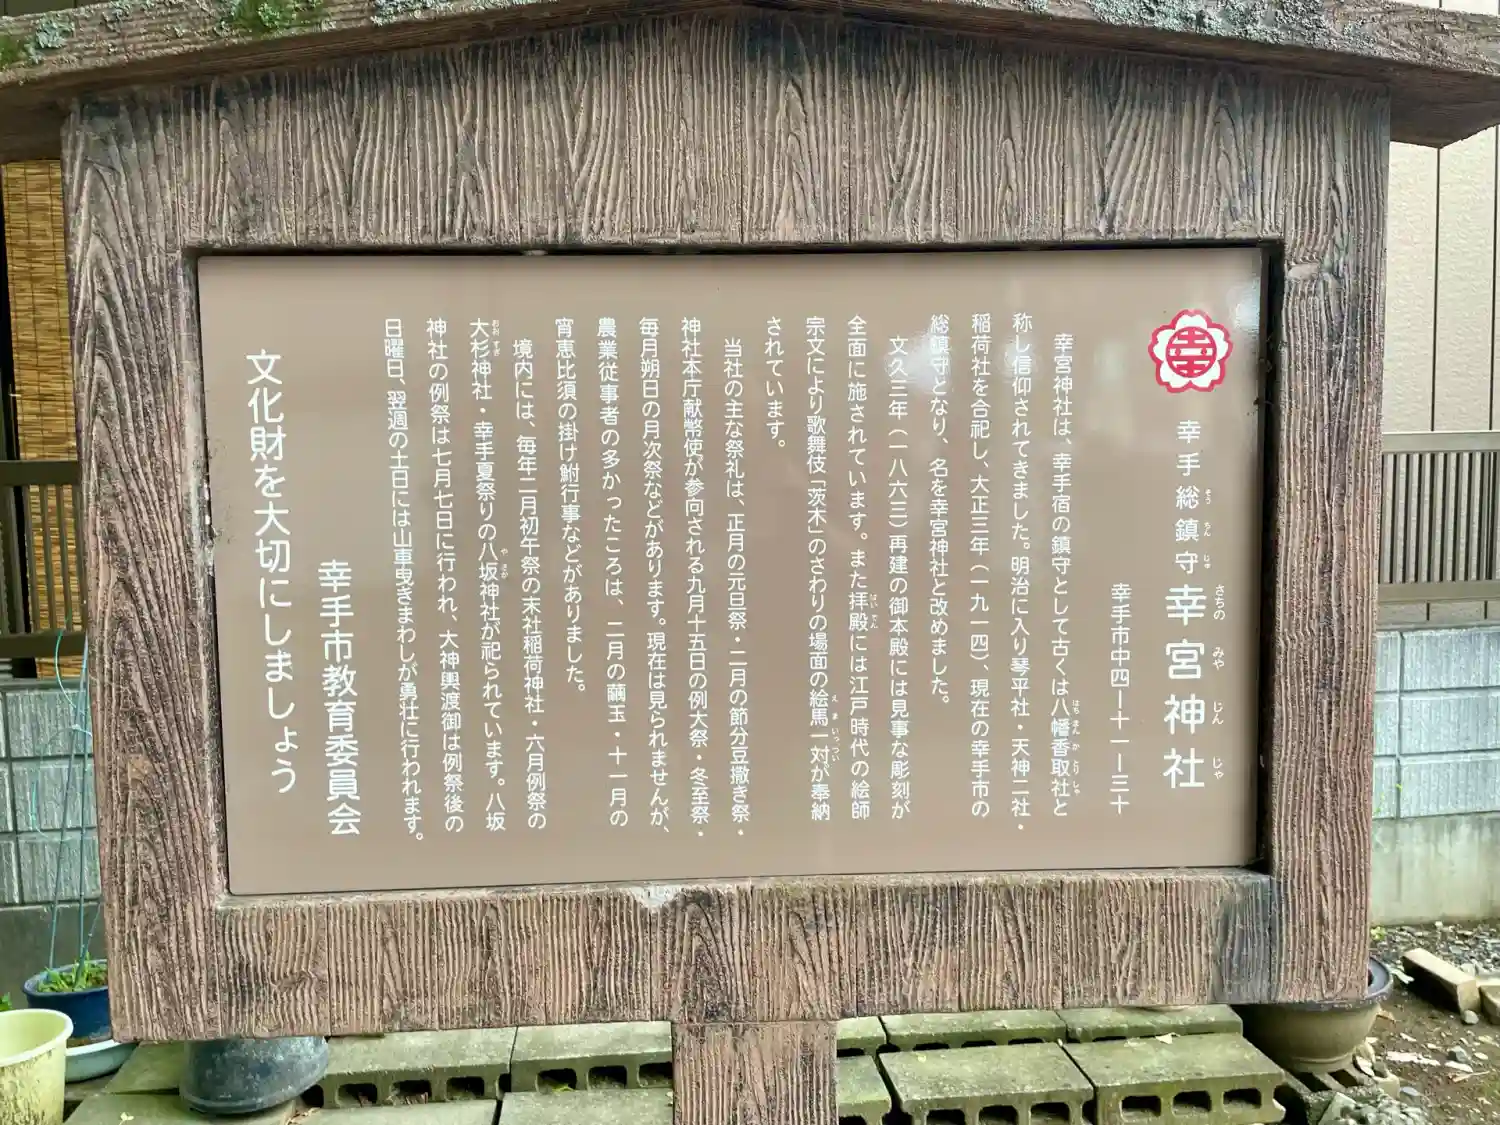 幸手総鎮守幸宮神社
そう ちん じゅ さちの みや じん じゃ
幸手市中四ー十一ー三十
幸宮神社は、幸手宿の鎮守として古くは八幡香取社と
はち まん か とり しゃ
称し信仰されてきました。明治に入り琴平社・天神二社・
稲荷社を合祀し、大正三年(一九一四)、現在の幸手市の
総鎮守となり、名を幸宮神社と改めました。
文久三年(一八六三)再建の御本殿には見事な彫刻が
全面に施されています。また拝殿には江戸時代の絵師
はい でん
宗文により歌舞伎「茨木」のさわりの場面の絵馬一対が奉納
え ま いっつい
されています。
当社の主な祭礼は、正月の元旦祭・二月の節分豆撒き祭・
神社本庁献幣使が参向される九月十五日の例大祭・冬至祭・
毎月朔日の月次祭などがあります。現在は見られませんが、
農業従事者の多かったころは、二月の繭玉・十一月の
宵恵比須の掛け鮒行事などがありました。
境内には、毎年二月初午祭の末社稲荷神社・六月例祭の
大杉神社・幸手夏祭りの八坂神社が祀られています。八坂
おお すぎ や さか
神社の例祭は七月七日に行われ、大神輿渡御は例祭後の
日曜日、翌週の土日には山車曳きまわしが勇壮に行われます。
幸手市教育委員会
文化財を大切にしましょう